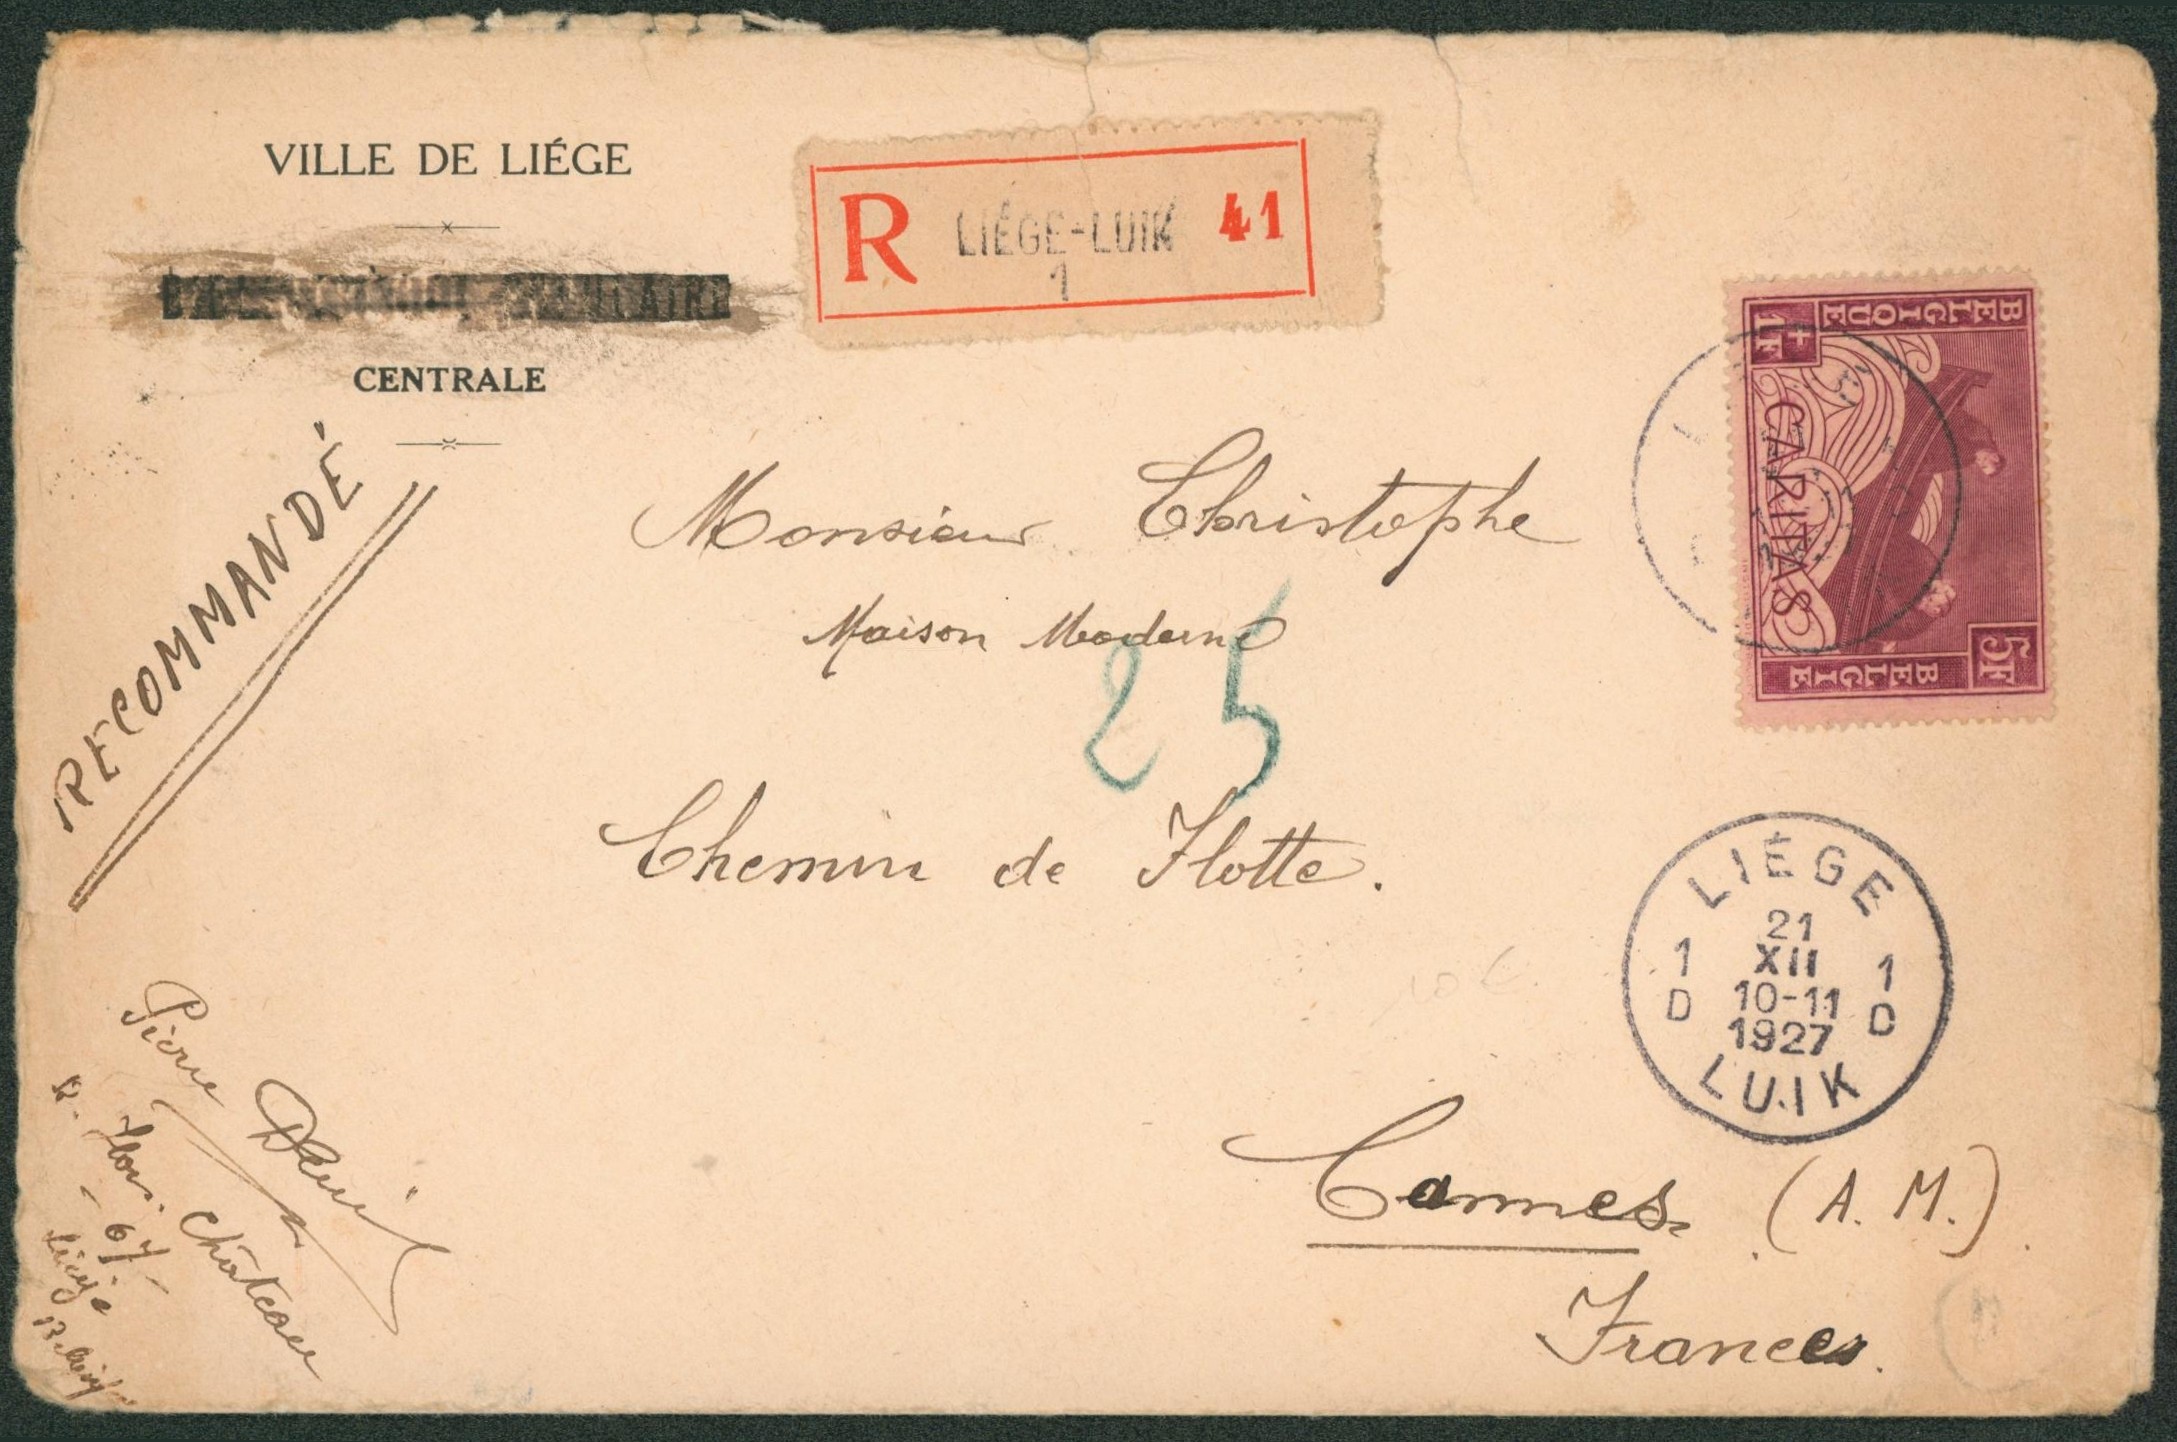 VILLE DE LIÉGE
CENTRALE
R LIÉGE-LUIK 41
1
RECOMMANDÉ
BELGIQUE
+1F
CARITAS
5F
BELGIE
Monsieur Christophe
Maison Moderne
25
Chemin de Flotte.
LIÉGE
21
XII
1 10-11 1
D 1927 D
LUIK
Cannes (A. M.)
France.
10 €
Pierre
Château
67
Liège